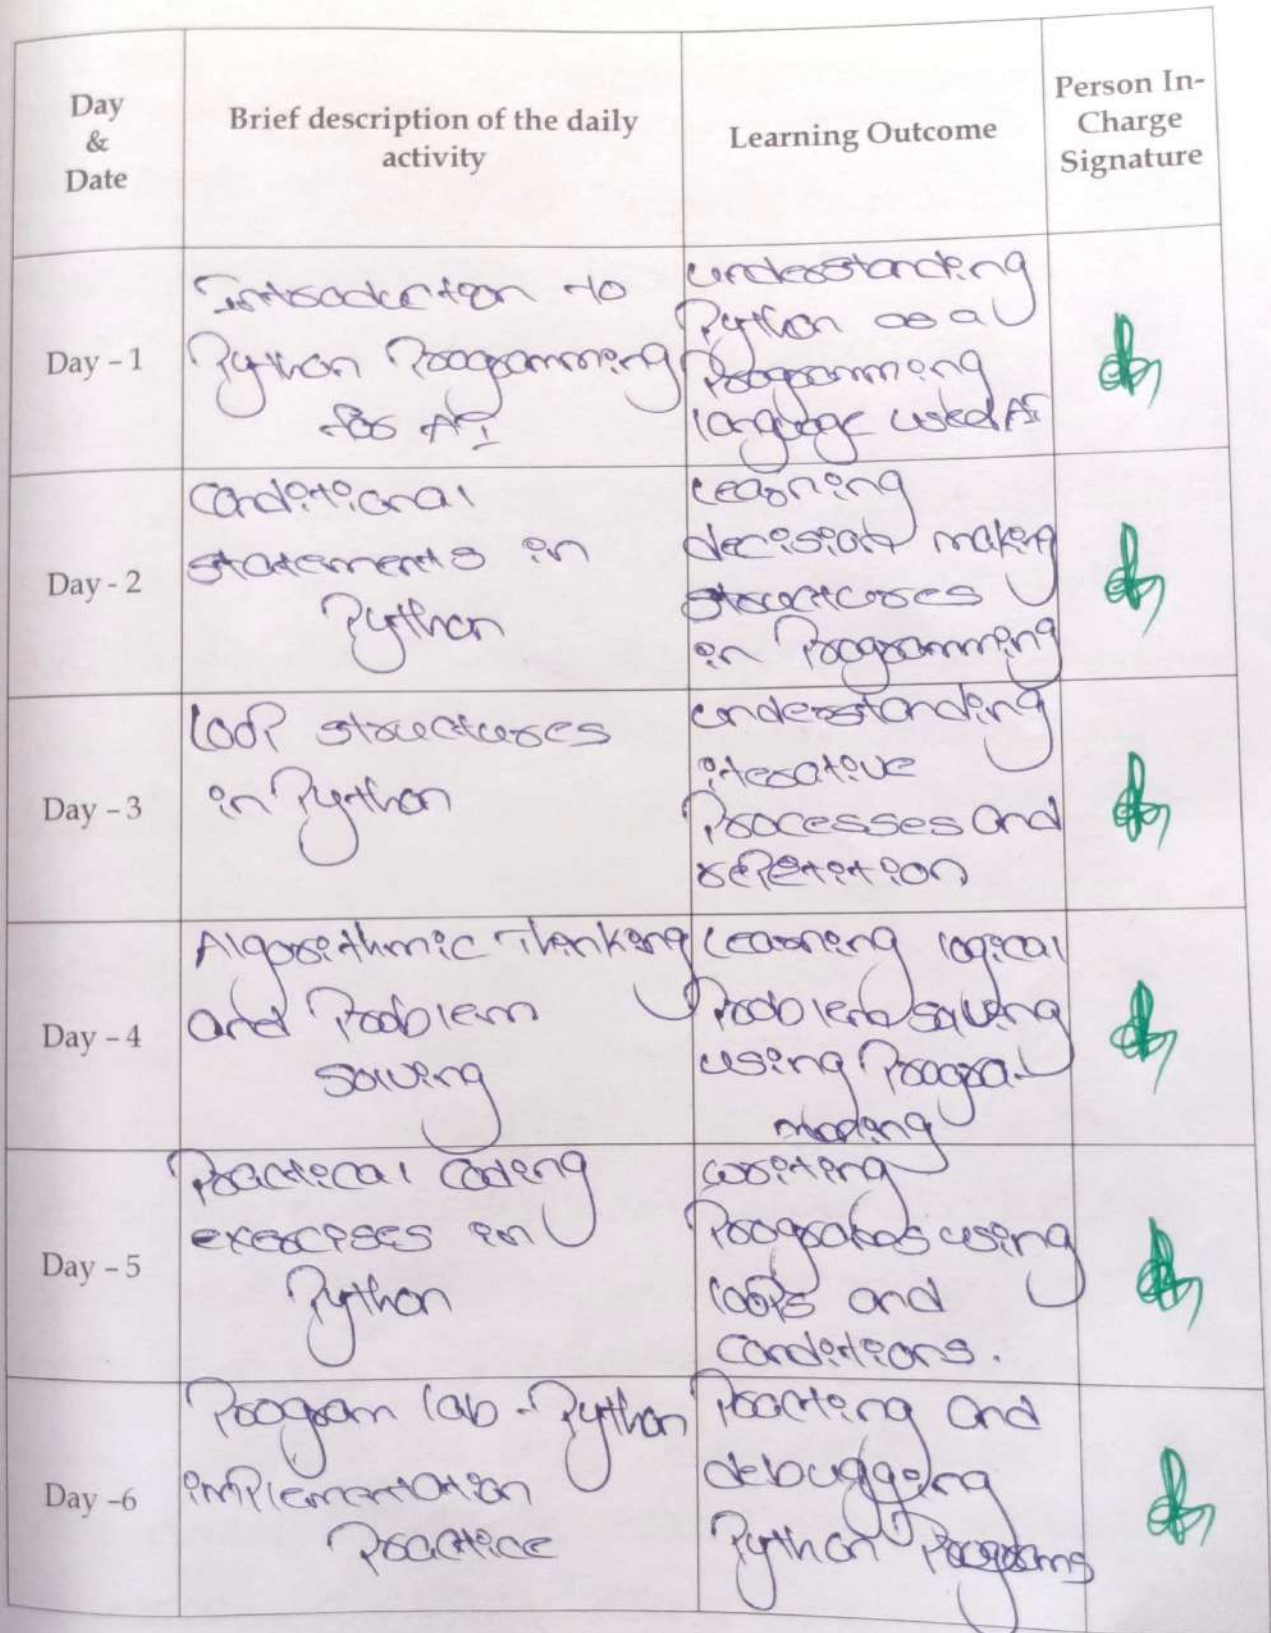 Day
&
Date
Brief description of the daily
activity
Learning Outcome
Person In-
Charge
Signature
Day – 1
Introduction to
Python Programming
for AI
understanding
Python as a
Programming
language used AI
Day - 2
Conditional
statements in
Python
Learning
decision making
structures
in Programming
Day – 3
LOOP structures
in Python
understanding
iterative
Processes and
repetition
Day – 4
Algorithmic Thinking
and Problem
solving
Learning logical
Problem solving
using Progra-
mming
Day – 5
Practical Coding
exercises in
Python
writing
Programs using
loops and
conditions.
Day –6
Program lab - Python
implementation
Practice
Practing and
debugging
Python Programs